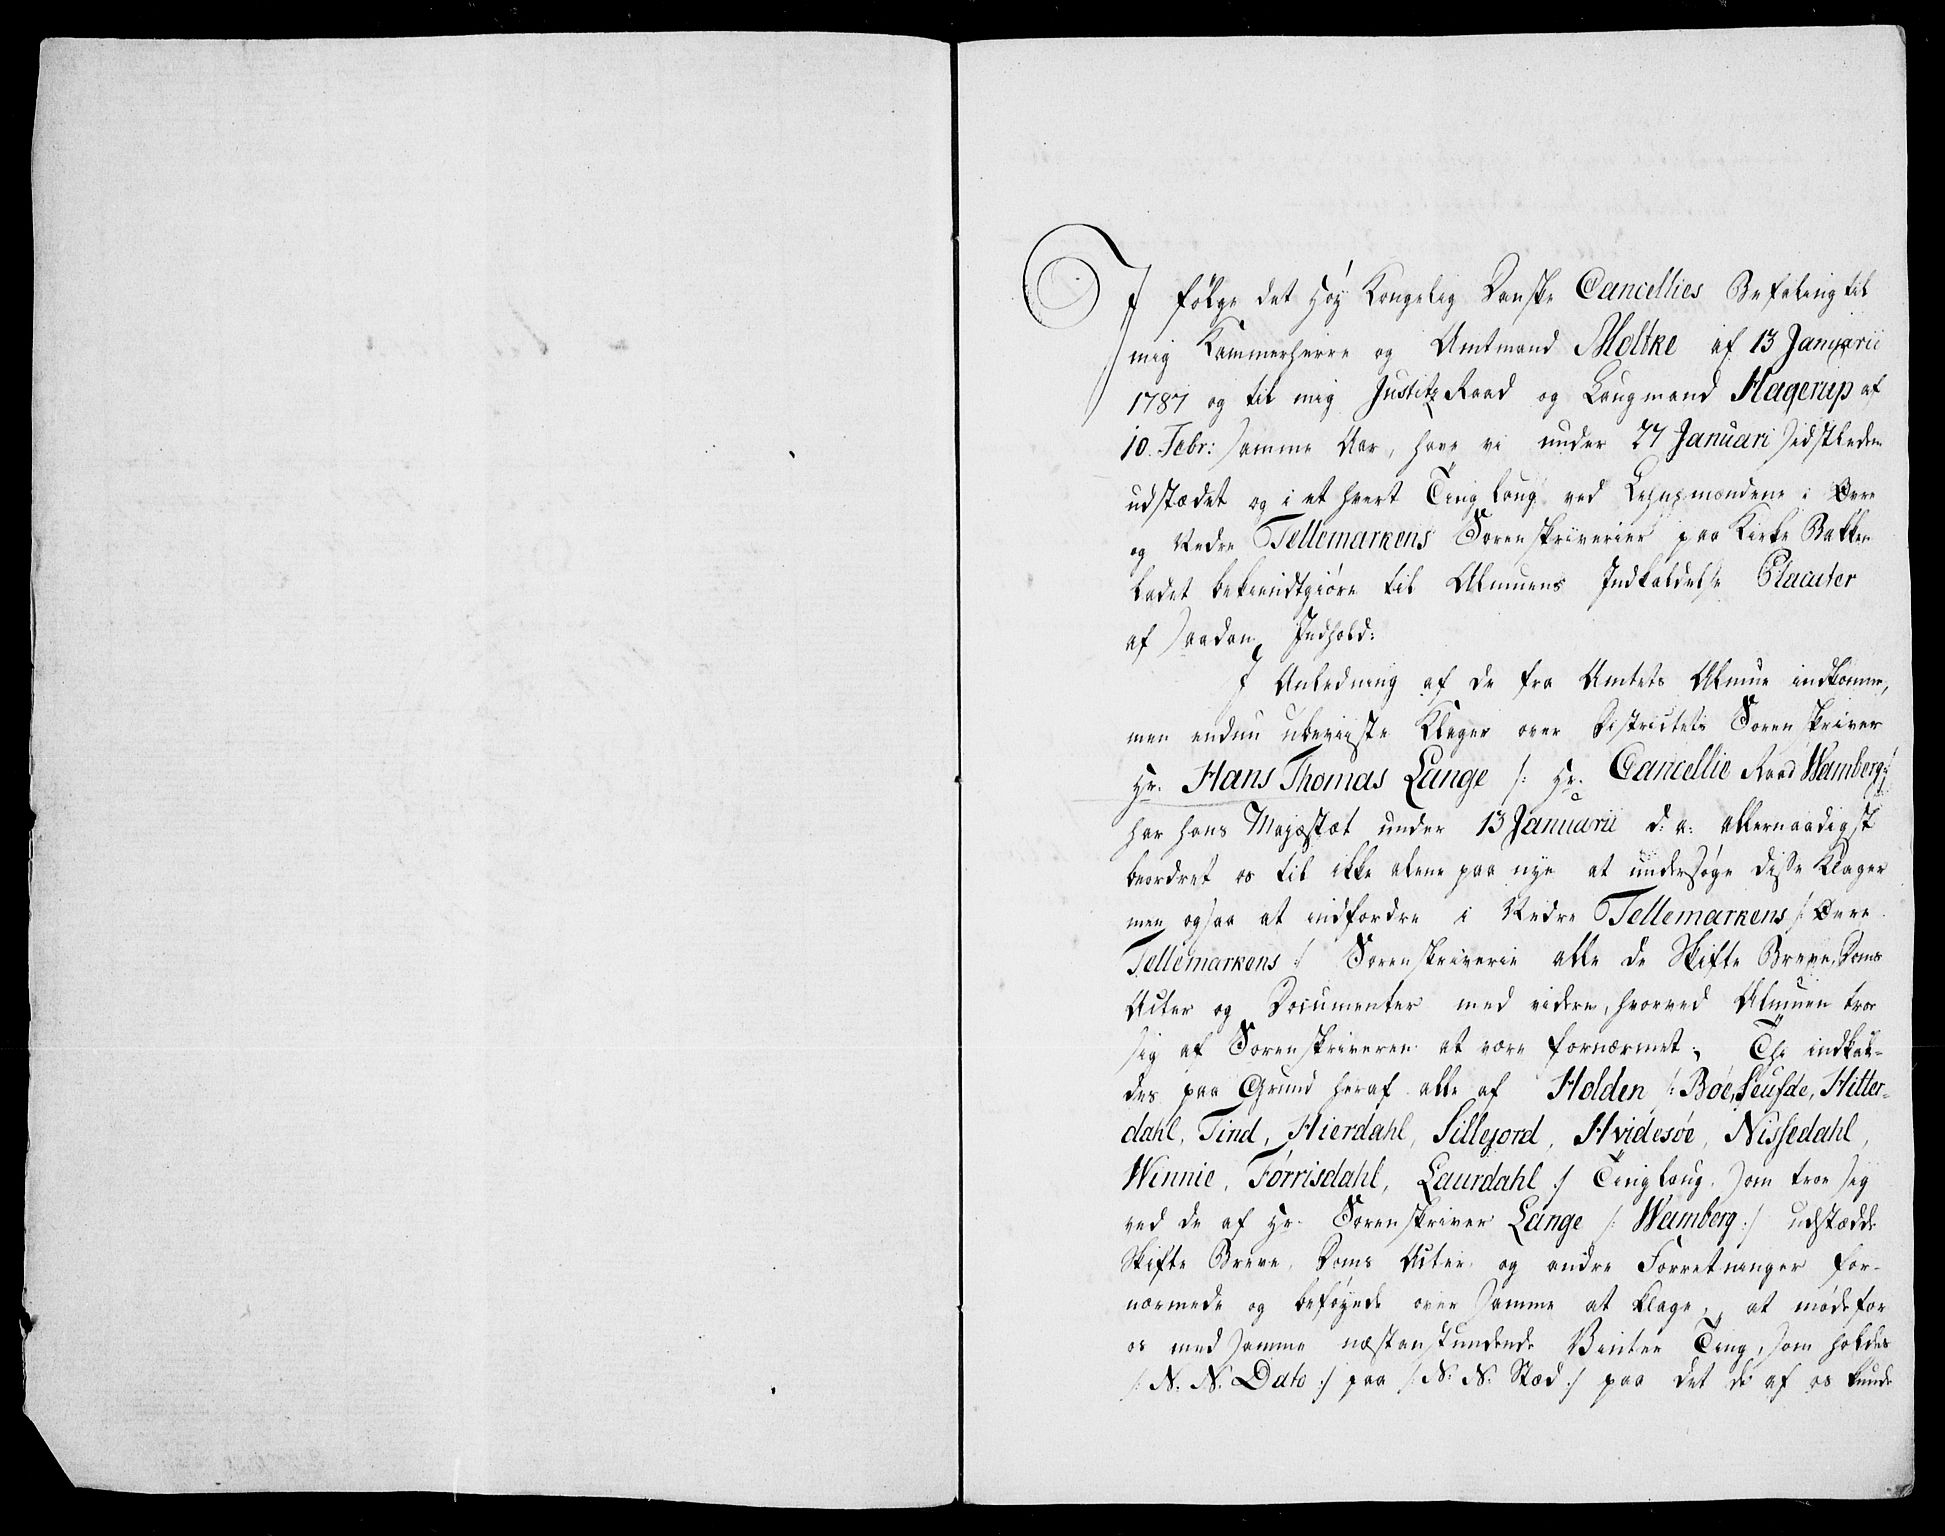 I følge det Høy Kongelig Danske Cancellies Befaling til
mig Kammerherre og Amtmand Moltke af 13 Januarii
1787 og til mig Justitz Raad og Laugmand Hagerup af
10. Febr: samme Aar, have vi under 27 Januari sidstleden
udstædet og i et hvert Tinglaug ved Lehnsmændene i Øvre
og Nedre Tellemarkens Sorenskriverier paa Kirke Bakken
ladet bekiendtgiøre til Almuens Indkaldelse Placater
af saadan Indhold:
I Anledning af de fra Amtets Almue indkomne,
men endnu ubeviiste Klager over Districtets Sorenskriver
Hr. Hans Thomas Lange /: Hr. Cancellie Raad Wamberg :/
har hans Majestæt under 13 Januarii d: a: allernaadigst
beordret os til ikke alene paa nye at undersøge disse Klager
men ogsaa at indfordre i Nedre Tellemarkens /: Øvre
Tellemarkens :/ Sorenskriverie alle de Skifte Breve, Doms
Acter og Documenter med videre, hvorved Almuen troer
sig af Sorenskriveren at være fornærmet; Thi indkal-
des paa Grund heraf alle af Holden /: Bøe, Seufde, Hitter-
dahl, Tind, Hierdahl, Sillejord, Hvidesøe, Nissedahl,
Winnie, Førrisdahl, Laurdahl :/ Tinglaug, som troe sig
ved de af Hr. Sorenskriver Lange /: Wamberg :/ udstædde
Skifte Breve, Doms Acter og andre Forretninger for-
nærmede og beføyede over samme at klage, at møde for
os med samme næstanstundende Vinter Ting, som holdes
/: N. N. Dato :/ paa /: N. N. Stæd :/ paa det de af os kunde